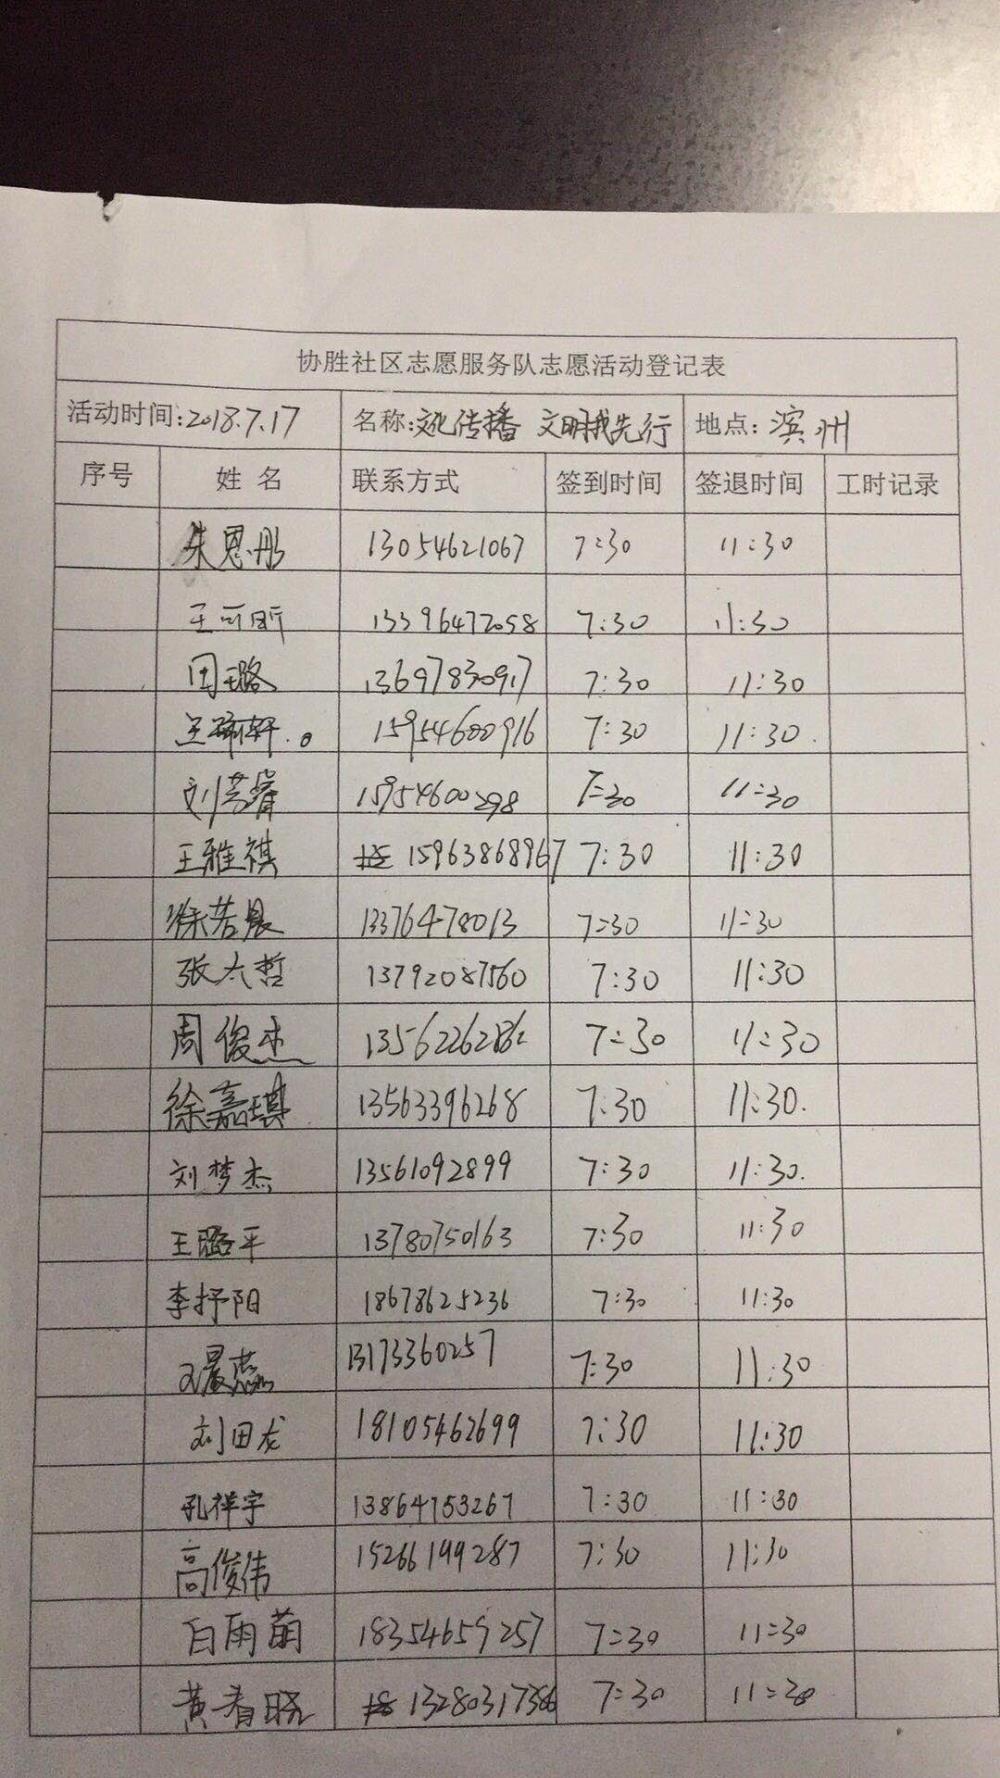 协胜社区志愿服务队志愿活动登记表
活动时间:2018.7.17 名称:文化传播 文明我先行 地点: 滨州
序号 姓名 联系方式 签到时间 签退时间 工时记录
朱恩彤 13054621067 7:30 11:30
王可昕 13396472058 7:30 11:30
田璐 13697830917 7:30 11:30
15954600916 7:30 11:30.
刘芳睿 15954600298 7:30 11:30
王雅祺 15963868967 7:30 11:30
徐若晨 13376478013 7:30 11:30
张太哲 13792087560 7:30 11:30
周俊杰 7:30 11:30
徐嘉琪 13563396268 7:30 11:30.
刘梦杰 13561092899 7:30 11:30.
王璐平 13780750163 7:30 11:30
李抒阳 18678625236 7:30 11:30
13173360257 7:30 11:30
刘田龙 18105462699 7:30 11:30
孔祥宇 13864753267 7:30 11:30
高俊伟 15266199287 7:30 11:30
白雨萌 18354659257 7:30 11:30
黄春晓 13280317366 7:30 11:30